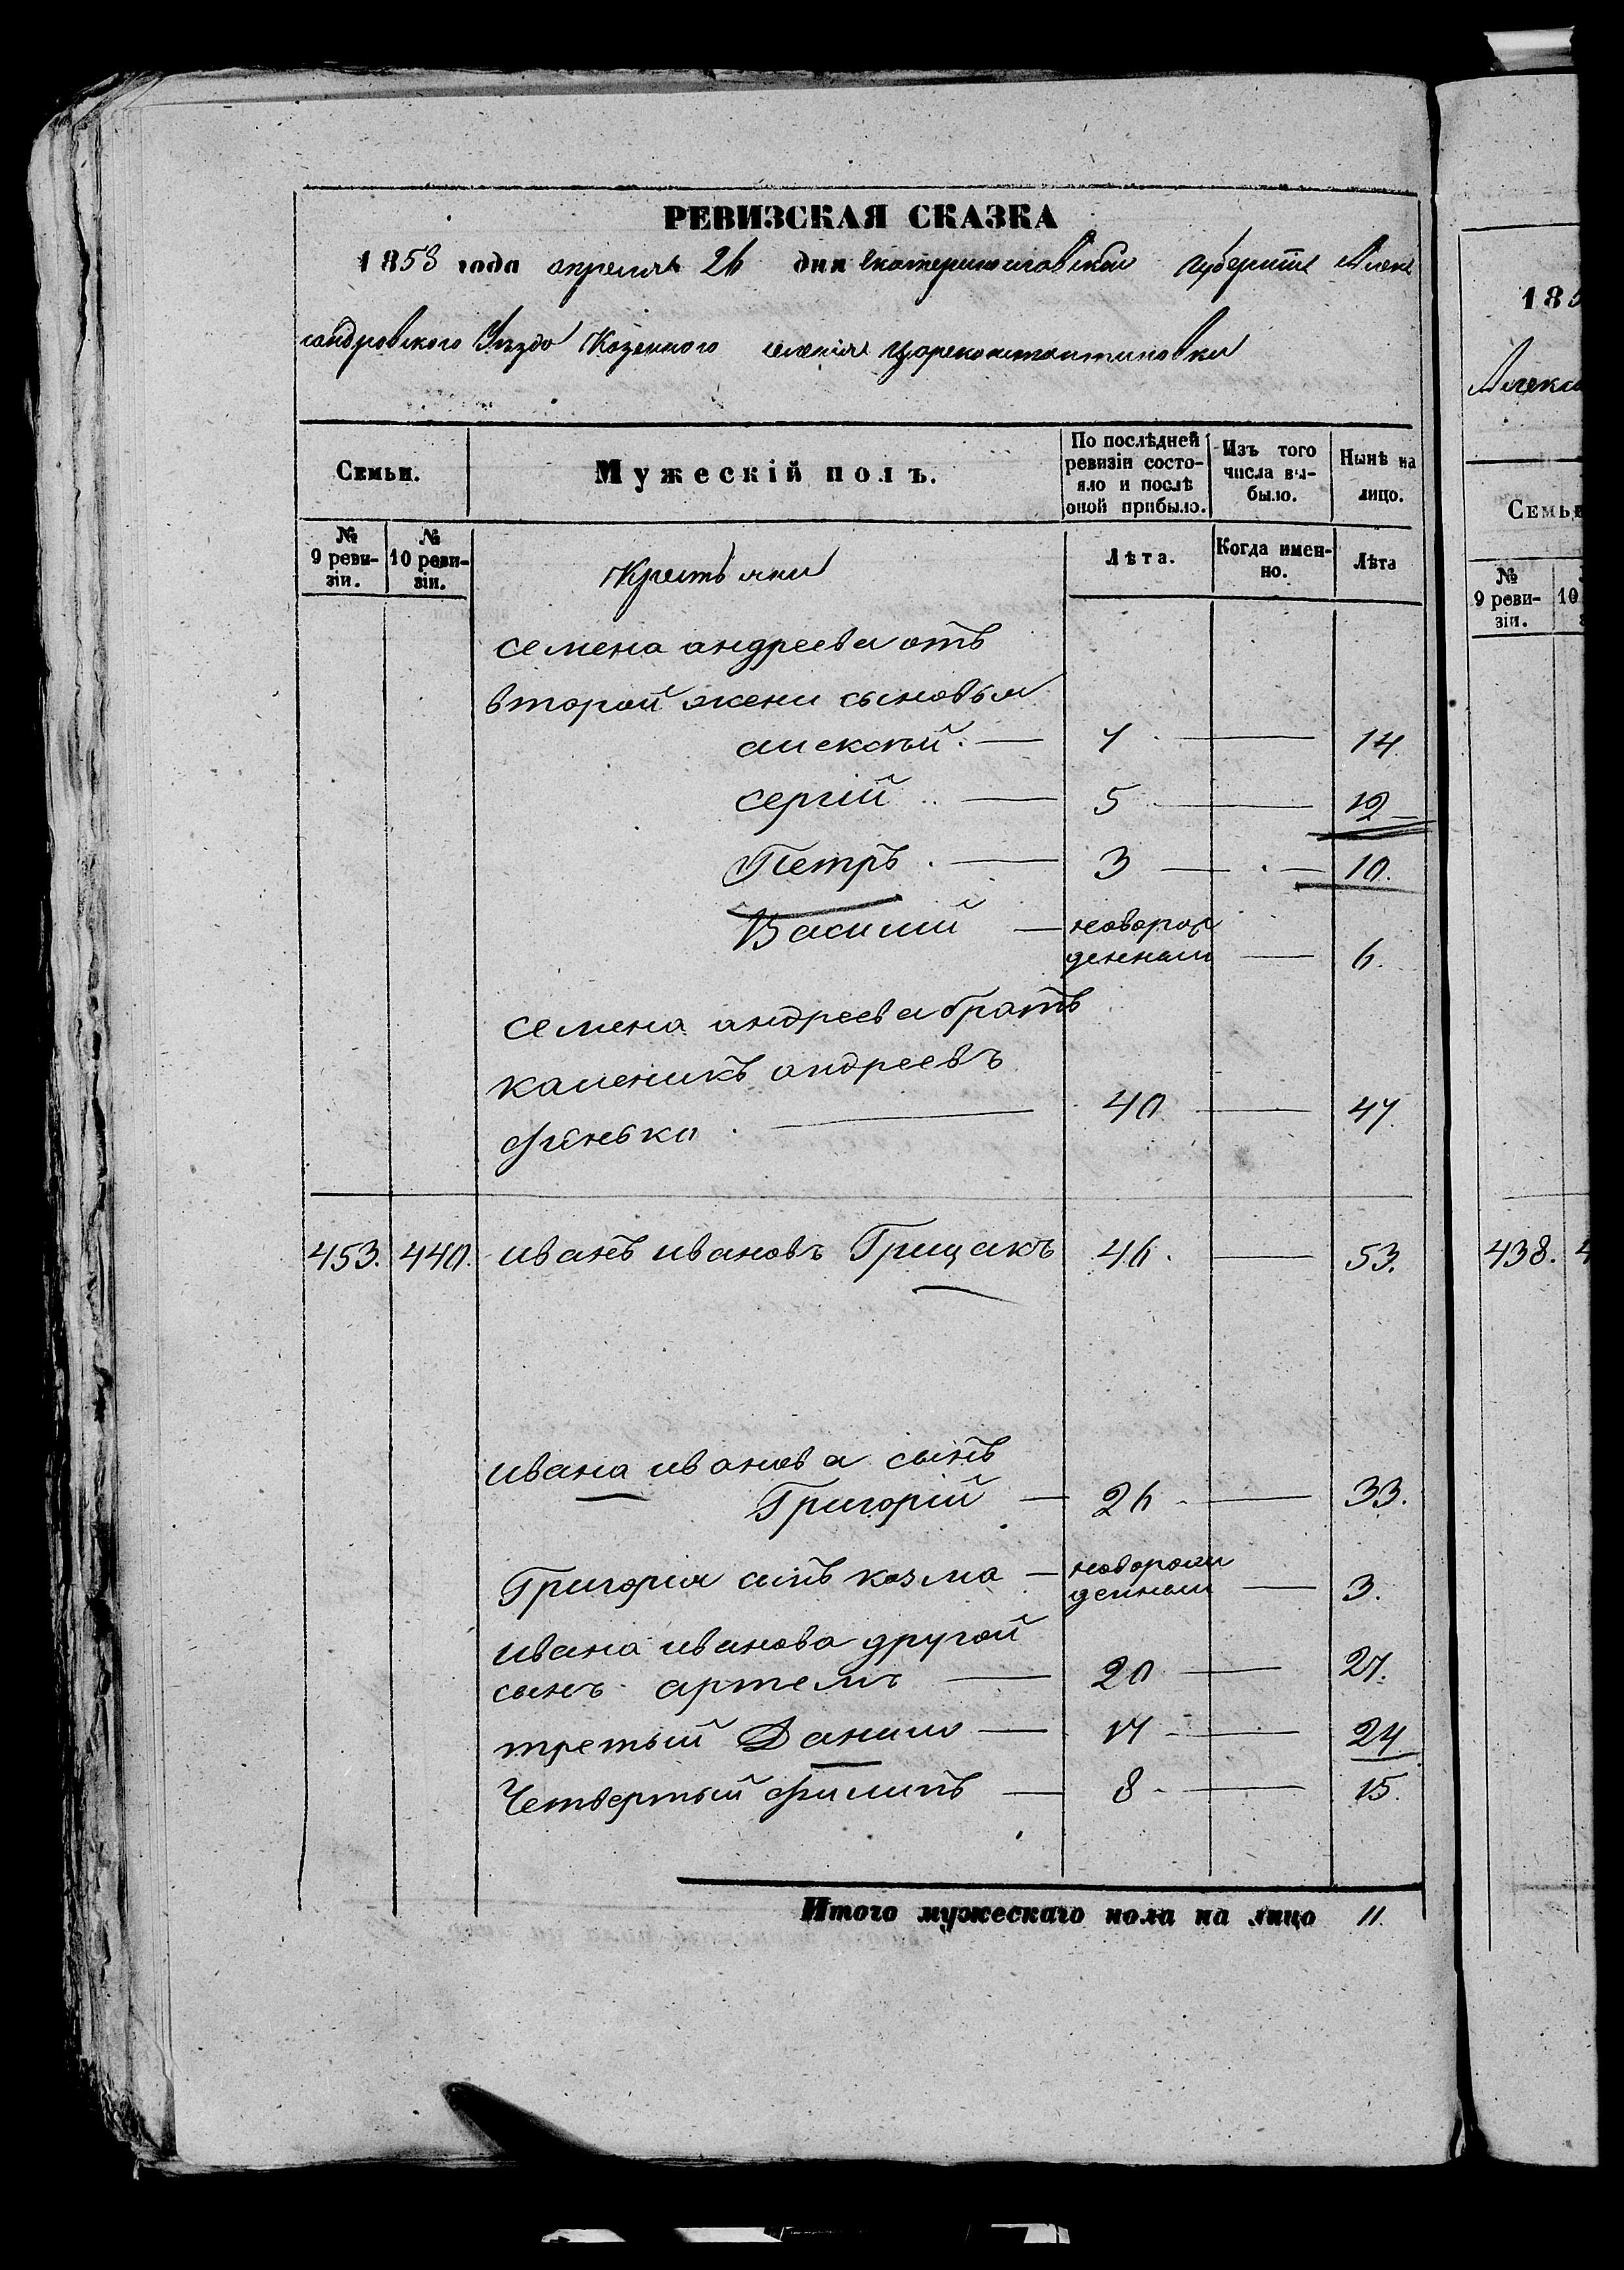 РЕВИЗСКАЯ СКАЗКА
1858 года апреля 26 дня Екатеринославской губернiи Алек
сандровского Уезда Казенного селенiя Цареконстантиновки
Семьи.
Мужескiй полъ.
По послѣдней
ревизiи состо-
яло и послѣ
оной прибыло.
Изъ того
числа вы-
было.
Нынѣ на
лицо.
№
9 реви-
зiи.
№
10 реви-
зiи.
Крестьяни
Лѣта.
Когда имен-
но.
Лѣта
семена андреева отъ
второй жени сыновья
алексѣй. — 7 — 14.
сергiй — 5 — 12
Петръ. — 3 — 10.
Василий — новорож
денный — 6.
семена андреева братъ
каленикъ андреевъ
фенько — 40 — 47.
453. 440. иванъ ивановъ Грицакъ 46. — 53.
ивана иванова сынъ
Григорiй — 26 — 33.
Григория сынъ козма — новорож
денный — 3.
ивана иванова другой
сынъ артемъ — 20 — 27.
третый Данило — 17 — 24
Четвертый филипъ — 8 — 15.
Итого мужескаго пола на лицо 11.
185
Алекса
Семьи
№
9 реви-
зiи.
10
438. 4